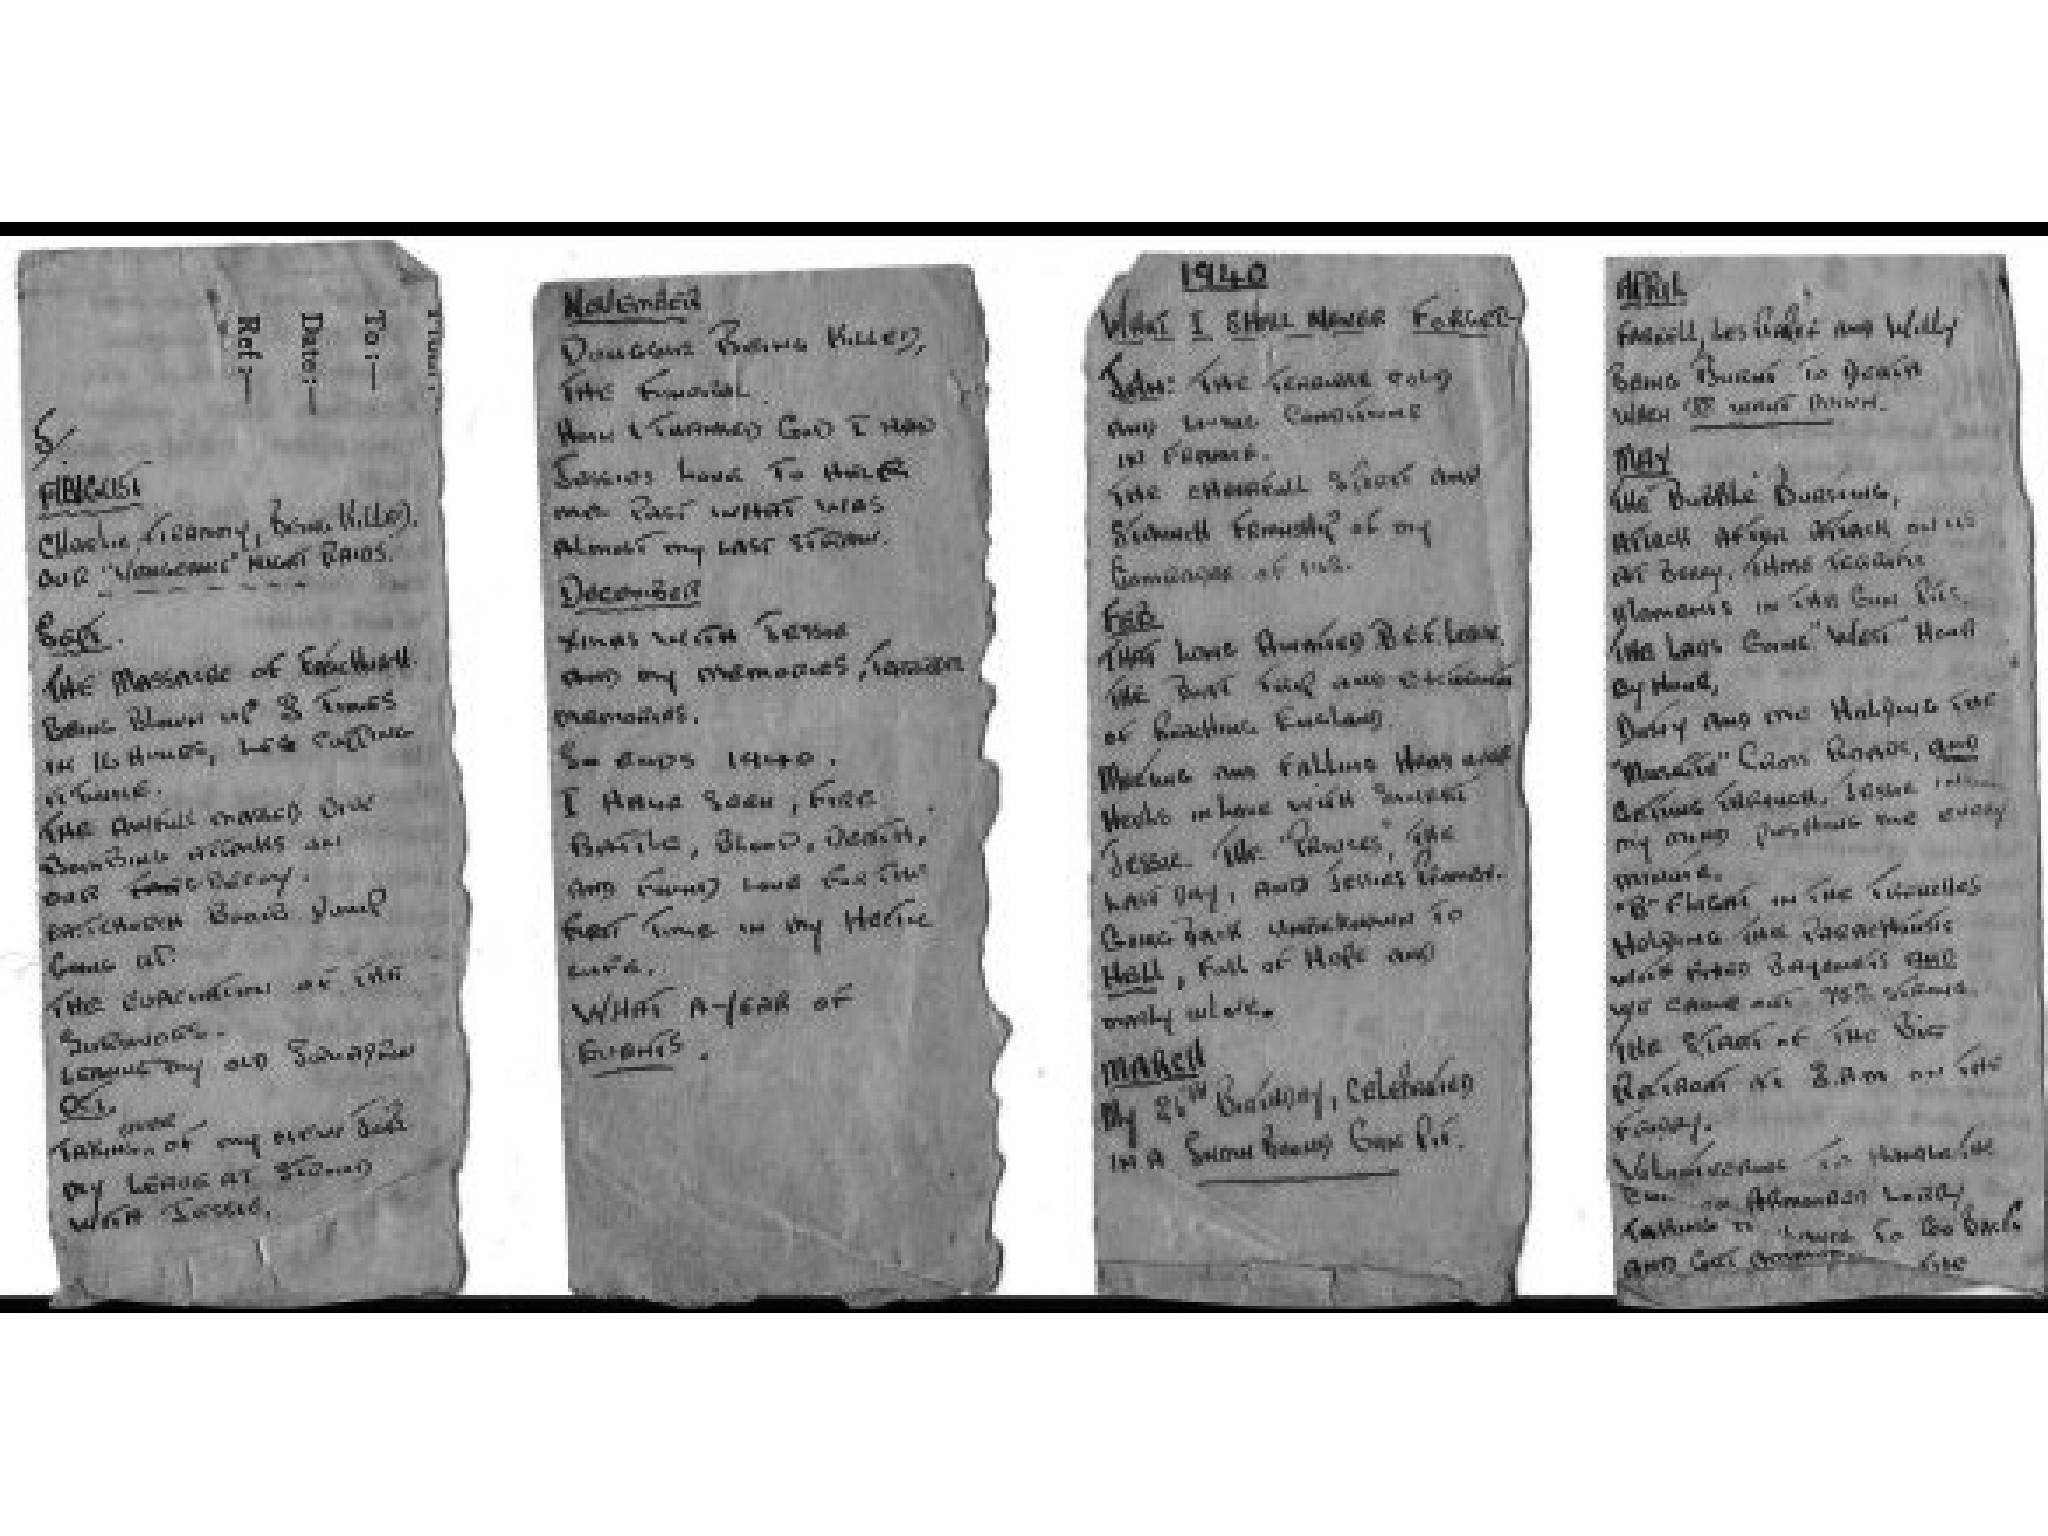 To:—
Date:—
Ref:—
5/
AUGUST
Charlie, Grammy, Being Killed.
OUR "VENGEANCE" NIGHT RAIDS.
SEPT.
THE MASSACRE OF EASTCHURCH.
BEING BLOWN UP 8 TIMES
IN 16 HOURS,
THE AWFULL MASSED DIVE
BOMBING ATTACKS ON
OUR DECOY.
EASTCHURCH BOMB DUMP
GOING UP.
THE EVACUATION OF THE
SURVIVORS.
LEAVING MY OLD SQUADRON
OCT.
TAKING OVER OF MY NEW JOB
MY LEAVE AT STROUD
WITH JESSIE.
NOVEMBER
BEING KILLED,
THE FUNERAL.
HOW I THANKED GOD I HAD
JESSIES LOVE TO HELP
ME PAST WHAT WAS
ALMOST MY LAST STRAW.
DECEMBER
XMAS WITH JESSIE
AND MY MEMORIES,
MEMORIES.
SO ENDS 1940.
I HAVE SEEN, FIRE
BATTLE, BLOOD, DEATH,
AND FOUND LOVE FOR THE
FIRST TIME IN MY HECTIC
LIFE.
WHAT A YEAR OF
EVENTS.
1940
WHAT I SHALL NEVER FORGET
JAN: THE TERRIBLE COLD
AND LIVING CONDITIONS
IN FRANCE.
THE CHEERFULL SPIRIT AND
STAUNCH FRIENSHIP OF MY
COMRADES OF
FEB
THAT LONG AWAITED B.E.F. LEAVE.
THE BOAT TRIP AND
OF REACHING ENGLAND.
MEETING AND FALLING HEAD OVER
HEELS IN LOVE WITH SWEET
JESSIE. THE "PRINCES", THE
LAST DAY, AND JESSIES PROMISE.
GOING BACK UNBEKNOWN TO
HELL, FULL OF HOPE AND
MADLY IN LOVE.
MARCH
MY 25TH BIRTHDAY, CELEBRATED
IN A SNOW BOUND GUN PIT.
APRIL
FARRELL, AND WILLY
BEING BURNT TO DEATH
WHEN WENT DOWN.
MAY
THE BUBBLE BURSTING,
ATTACK AFTER ATTACK ON US
AT BERRY, THOSE TERRIBLE
MOMENTS IN THE GUN PITS,
THE LADS GOING "WEST" HOUR
BY HOUR,
AND ME HOLDING THE
CROSS ROADS, AND
GETTING THROUGH, JESSIE IN
MY MIND PUSHING ME EVERY
MINUTE.
"B" FLIGHT IN THE TRENCHES
HOLDING THE PARACHUTISTS
WITH FIXED BAYONETS AND
WE CAME OUT 75% STRONG.
THE START OF THE BIG
RETREAT AT 3.A.M ON THE
FRIDAY.
VOLUNTEERING TO HANDLE THE
ON ARMOURED LORRY
TAKING TO GO BACK
AND GET